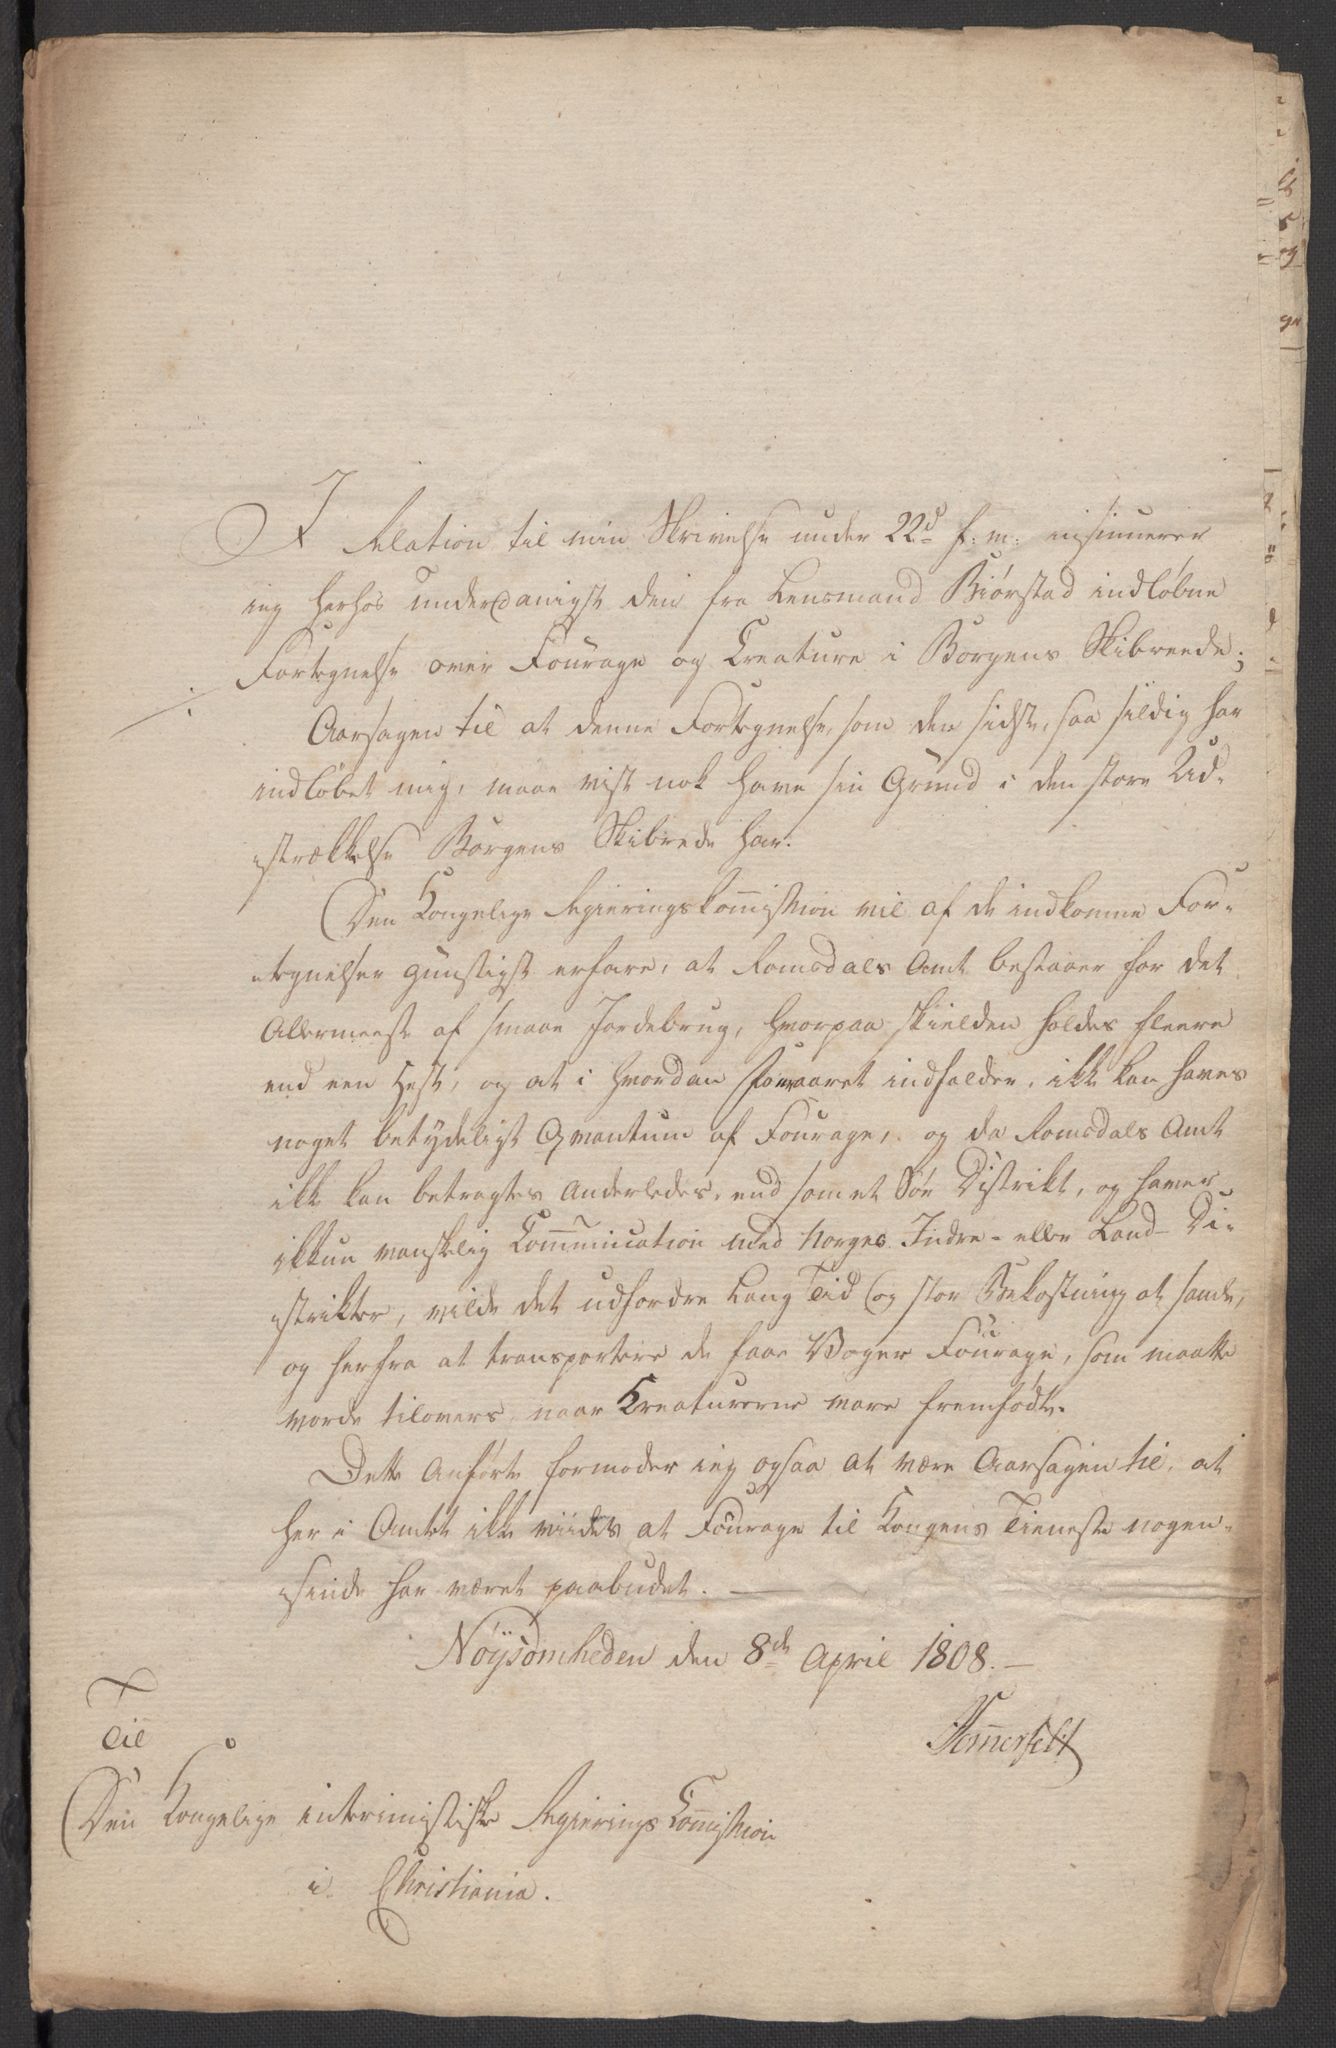 I Relation til min Skrivelse under 22d f: m: insinuerer
ieg herhos underdanigst den fra Lensmand Biørstad indløbne
Fortegnelse over Fourage og Creature i Borgens Skibreede;
Aarsagen til at denne Fortegnelse, som den sidste, saa sildig har
indløbet mig, maae vist nok have sin Grund i den store Ud-
strækkelse Borgens Skibrede har.
Den Kongelige Regieringskom̅ission vil af de indkomne For-
tegnelser gunstigst erfare, at Romsdals Amt bestaaer for det
Allermeeste af smaae Jordebrug, hvorpaa skielden holdes fleere
end een Hest, og at i hvordan Foraaret indfalder, ikke kan haves
noget betydeligt Qvantum af Fourage, og da Romsdals Amt
ikke kan betragtes Anderledes, end som et Søe Distrikt, og haver
ikkun vanskelig Com̅unication med Norges Indre- eller Land-Di-
strikter, vilde det udfordre Lang Tid og stor Bekostning at samle,
og herfra at transportere de faae Voger Fourage, som maatte
vorde tilovers, naar Kreaturerne vare fremfødte.
Dette Anførte formoder ieg ogsaa at være Aarsagen til, at
her i Amtet ikke viides at Fourage til Kongens Tieneste nogen-
sinde har været paabudet.
Nøysomheden den 8de April 1808.
Som̅erfelt
Til
Den Kongelige interimistiske Regierings Com̅ission
i Christiania.